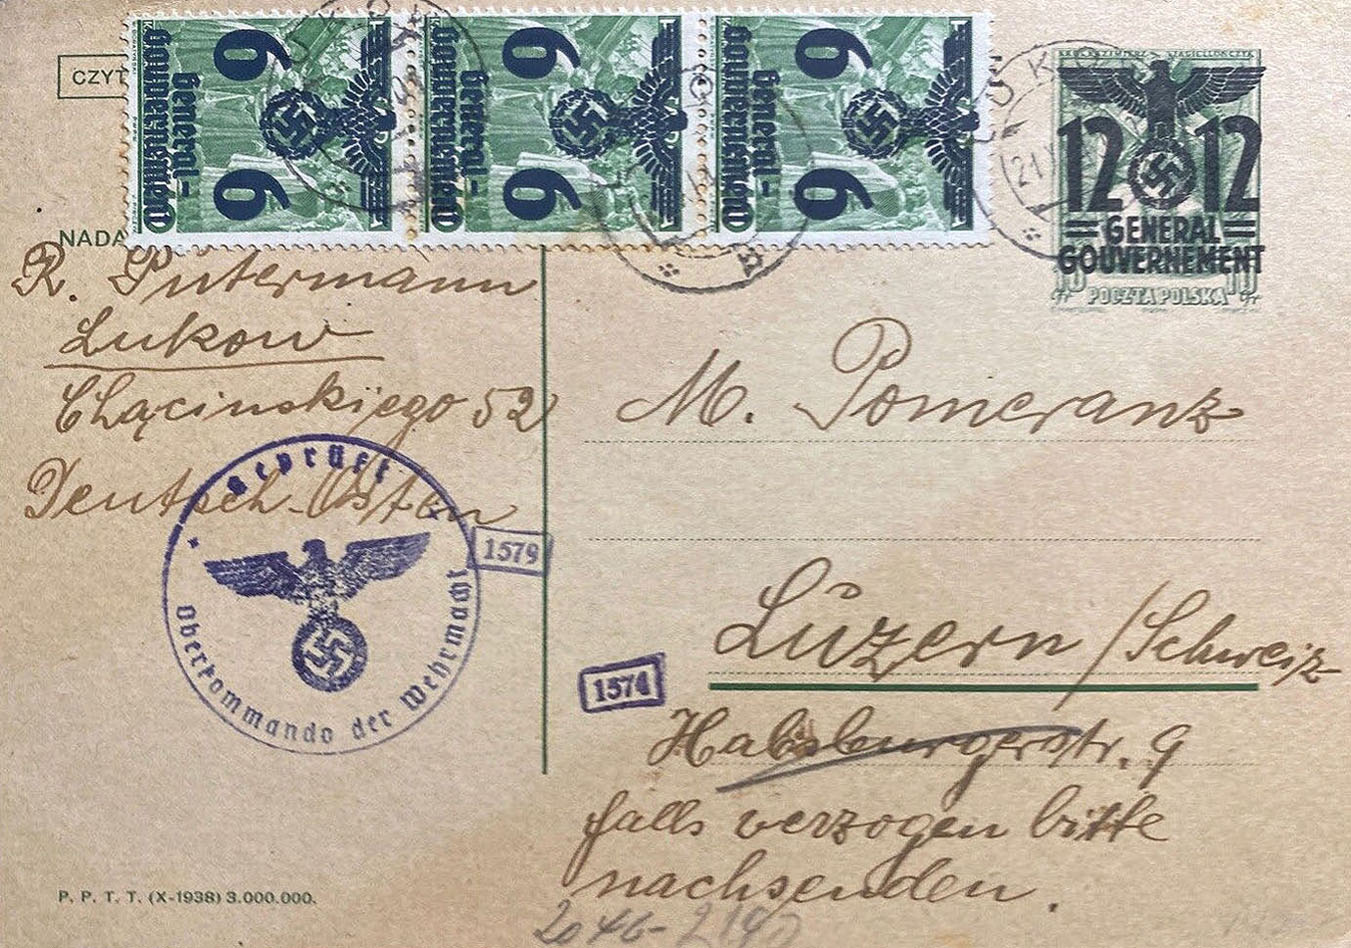 CZYT
6 6
General-
Gouvernement
6 6
General-
Gouvernement
6 6
General-
Gouvernement
ŁUKÓW
21.
12 12
GENERAL
GOUVERNEMENT
10 10
gr POCZTA POLSKA gr
NADA
R. Putermann
Lukow
Chącinskiego 52
Deutsch-Osten
Geprüft
Oberkommando der Wehrmacht
1579
M. Pomeranz
Luzern / Schweiz
1574
Habsburgerstr. 9
falls verzogen bitte
nachsenden.
P. P. T. T. (X-1938) 3.000.000.